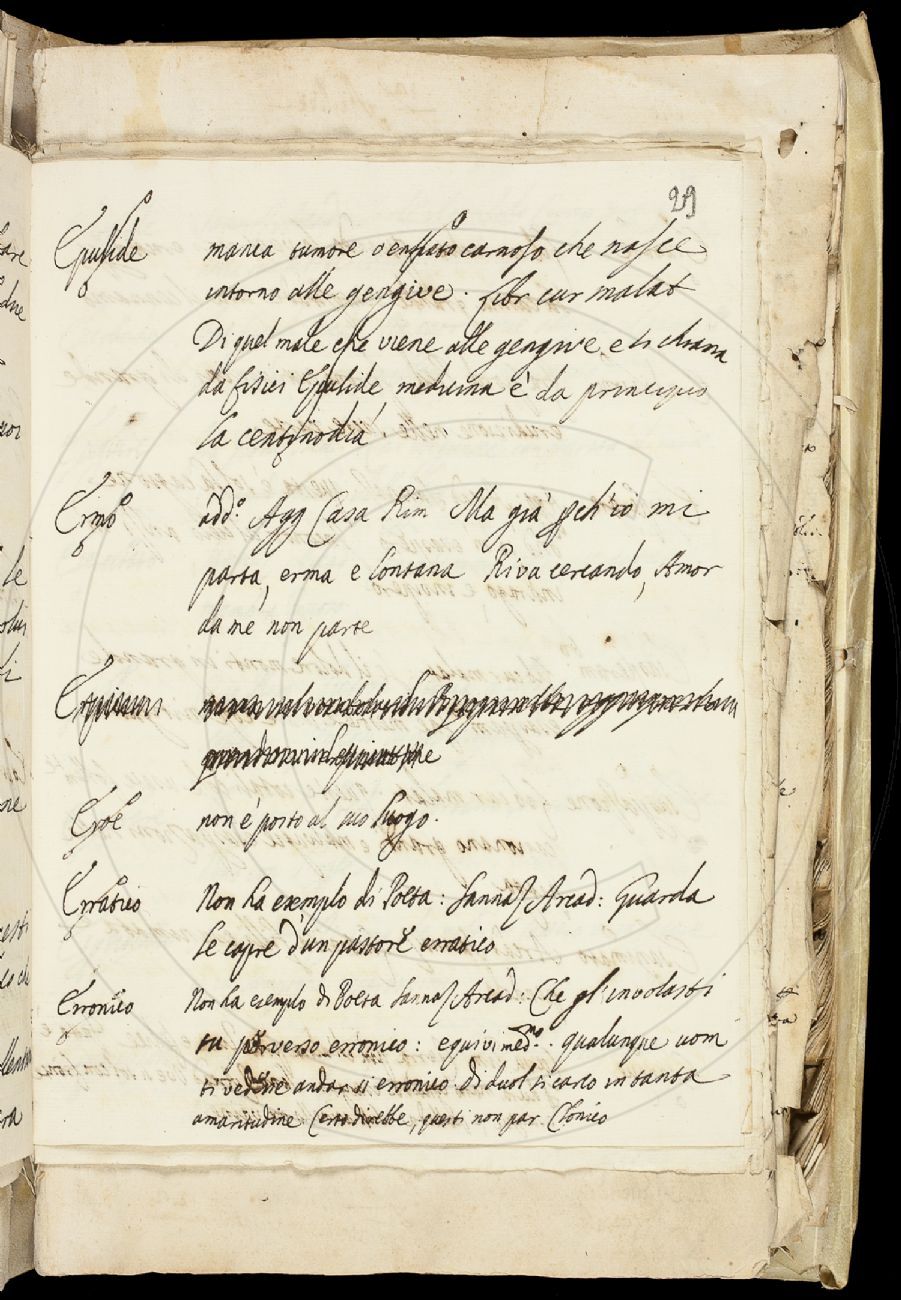 29
Epulide manca tumore o enfiato carnoso che nasce
intorno alle gengive. libr cur malat
Di quel male che viene alle gengive e si chiama
da fisici Epulide, medicina è da principio
la centinodia
Ermo add.º Agg Casa Rim Ma già perch'io mi
parta, erma e lontana Riva cercando, Amor
da me non parte
Erole non è posto al suo luogo.
Erratico Non ha exemplo di Poeta: Sannaz Arcad: Guarda
le capre d'un pastore erratico
Erronico Non ha exemplo di Poeta Sannaz Arcad: Che gl'involasti
tu perverso erronico: equivi med.mo. qualunque uom
ti vedesse andar si erronico di duol si carco in tanta
amaritudine Certo direbbe, questi non par Clonico